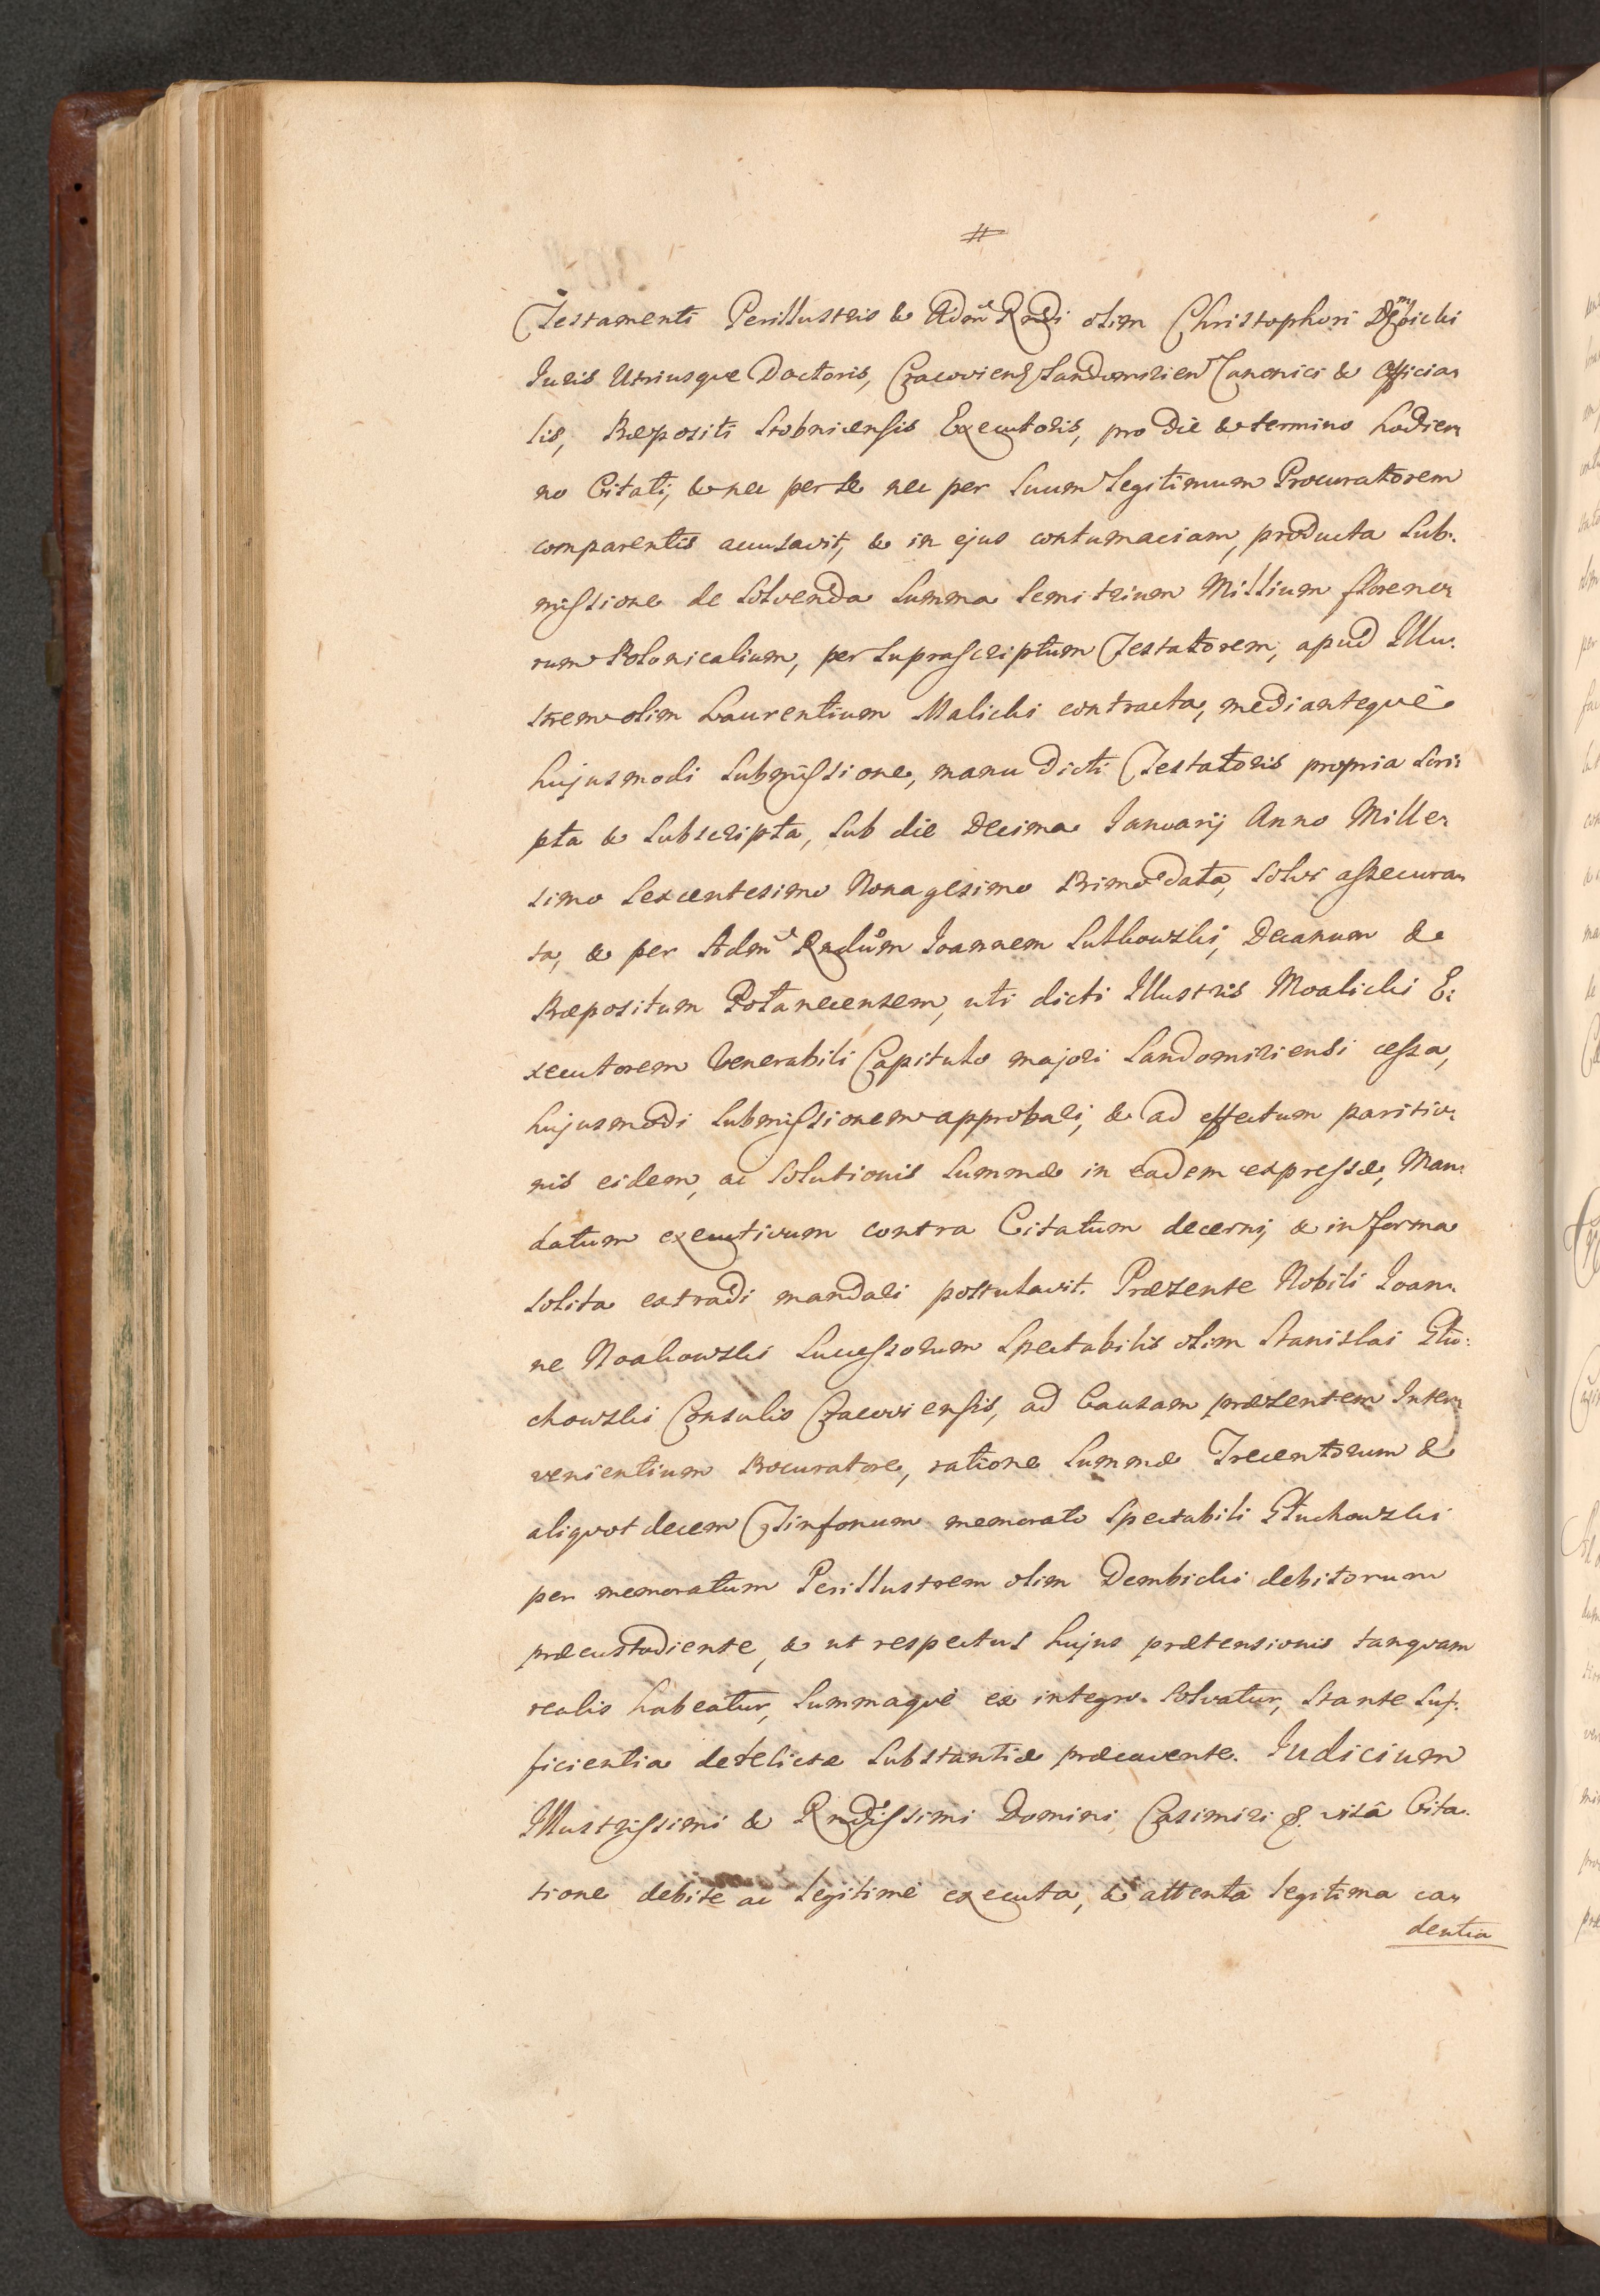 #
Testamenti Perillustris & Admd Rndi olim Christophori Dembicki
Iuris Utriusque Doctoris, Cracovien Sandomirien Canonici & Officia-
lis, Præpositi Stobnicensis Executoris, pro die & termino hodier-
no Citati, & nec per se nec per Suum Legitimum Procuratorem
comparentis accusavit, & in ejus contumaciam, producta Sub-
missione de Solvenda Summa Semitrium Millium floreno-
rum Polonicalium, per Suprascriptum Testatorem, apud Illu-
strem olim Laurentium Malicki contracta, mediantequè
hujusmodi Submissione, manu dicti Testatoris propria Scri-
pta & Subscripta, Sub die Decima Ianuarij Anno Mille-
simo Sexcentesimo Nonagesimo Primo data, Solvi assecura-
ta, & per Admd Rndum Ioannem Sutkowski, Decanum &
Præpositum Połanecensem, uti dicti Illustris Moalicki E-
xecutorem Venerabili Capitulo majori Sandomiriensi cessa,
hujusmodi Submissionem approbari, & ad effectum paritio-
nis eidem, ac Solutionis Summæ in eadem expressæ, Man-
datum executivum contra Citatum decerni, & in forma
Solita extradi mandari postulavit. Præsente Nobili Ioan-
ne Noakowski Successorum Spectabilis olim Stanislai Głu-
chowski Consulis Cracoviensis, ad Causam præsentem Inter-
venientium Procuratore, ratione Summæ Trecentorum &
aliquot decem Tinfonum memorato Spectabili Głuchowski
per memoratum Perillustrem olim Dembicki debitorum
præcustodiente, & ut respectus hujus prætensionis tanquam
realis habeatur, Summaquè ex integro Solvatur, Stante Suf-
ficientia derelictæ Substantiæ præcavente. Iudicium
Illustrissimi & Rndissimi Domini Casimiri &. visâ Cita-
tione debite ac legitimè executa, & attenta legitima ca-
dentia